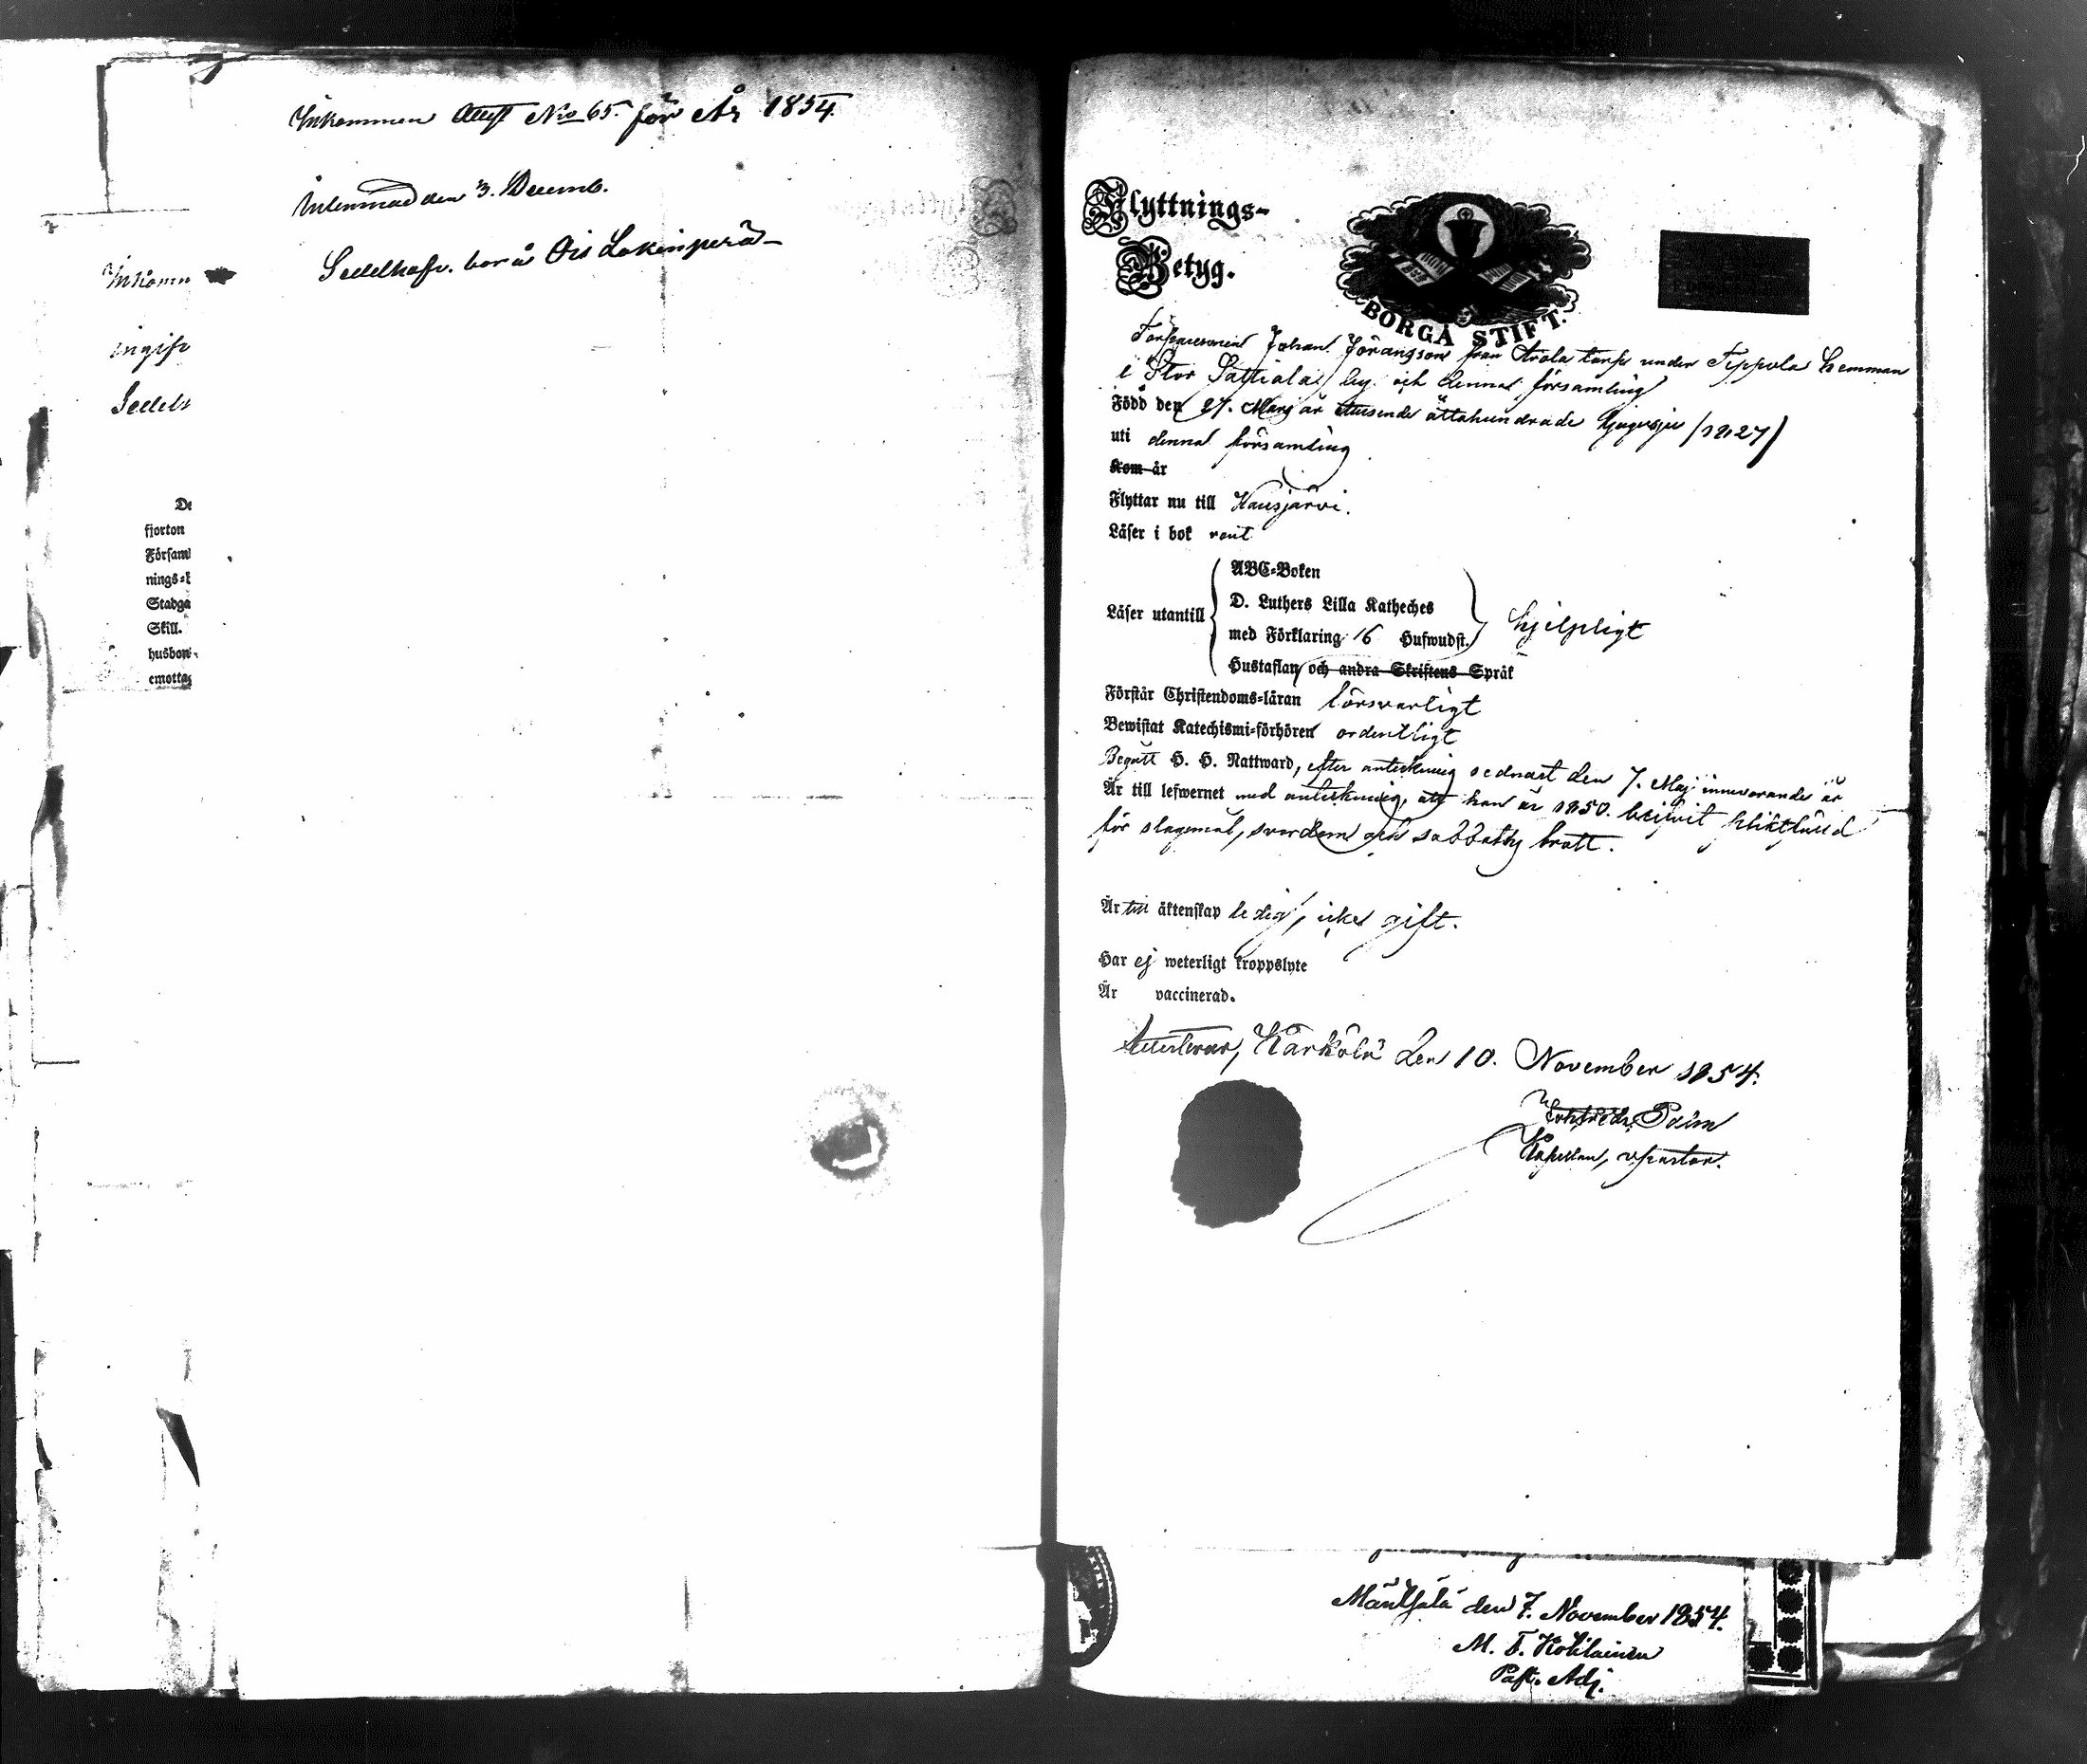 Inkommen Attest No 65. för År 1854.
Inlemnad den 3. Decemb.
Sedelhafv. bor å Ois Lakinperä
Inkomm
ingifv
Sedelh
De
fjorton
Församl
nings-b
Stadga
Skill.
husbon
emottag
Flyttnings-
Betyg.
BORGÅ STIFT.
Johan Jöransson från Arola torp under Teppola hemman
i Stor Sattiala by och denna församling
Född den 27. Mars år ettusende åttahundrade tjugusju /1827/
uti denna församling
Kom år
Flyttar nu till Hausjärvi.
Läser i bok rent
ABC-Boken
D. Luthers Lilla Katheches
Läser utantill
med Förklaring 16 Hufwudst.
hjelpligt
Hustaflan och andra Skriftens Språk
Förstår Christendoms-läran försvarligt
Bewistat Katechismi-förhören ordentligt
Begått H. H. Nattward, efter anteckning sednast den 7. Maj innevarande år
Är till lefwernet med anteckning, att han år 1850. blifvit pliktfäld
för slagsmål, svordom och sabbaths brott.
Är till äktenskap ledig, icke gift.
Har ej weterligt kroppslyte
Är vaccinerad.
Attesterar, Kärkölä den 10. November 1854.
Palm
Kapellan, v. pastor.
Mäntsälä den 7. November 1854.
M. F. Kotilainen
Past. Adj.